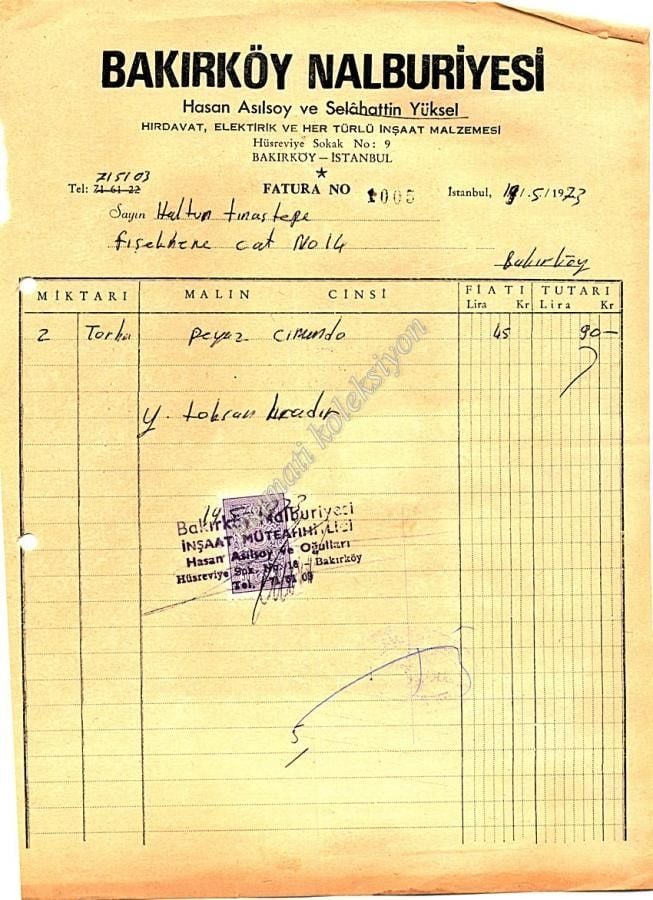 BAKIRKÖY NALBURİYESİ
Hasan Asılsoy ve Selâhattin Yüksel
HIRDAVAT, ELEKTİRİK VE HER TÜRLÜ İNŞAAT MALZEMESİ
Hüsreviye Sokak No: 9
BAKIRKÖY – İSTANBUL
★
715103
Tel: 71-61-22 FATURA NO 1005 İstanbul, 19/.5/1973
Sayın Haltun tınaztepe
fişekhane cat No 14
Bakırköy
MİKTARI MALIN CİNSİ FİATI TUTARI
Lira Kr Lira Kr
2 Torba Peyaz Cimundo 45 90—
Y. toksan liradır
19-5-1973
Bakırköy Nalburiyesi
İNŞAAT MÜTEAHHİTLİĞİ
Hasan Asılsoy ve Oğulları
Hüsreviye Sok. No. 18 - Bakırköy
Tel. 71 51 03
koleksiyon